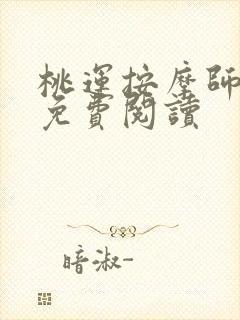 桃運按摩師
免費閱讀
暗淑-